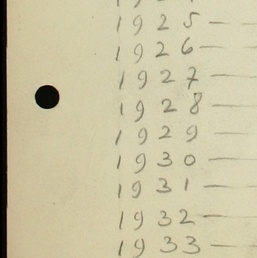 1925 —
1926 —
1927 —
1928 —
1929 —
1930 —
1931 —
1932 —
1933 —